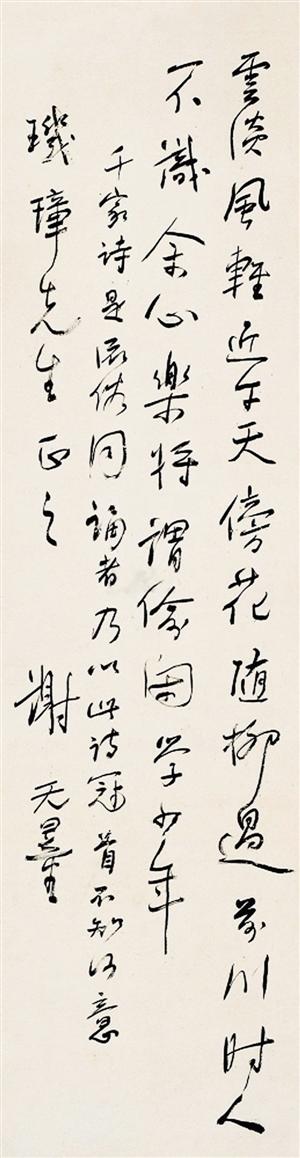 雲淡風輕近午天傍花随柳過前川时人
不識余心樂将謂偷闲学少年
千家诗是流俗同誦者乃以此诗冠首不知何意
璣璋先生正之
謝无量